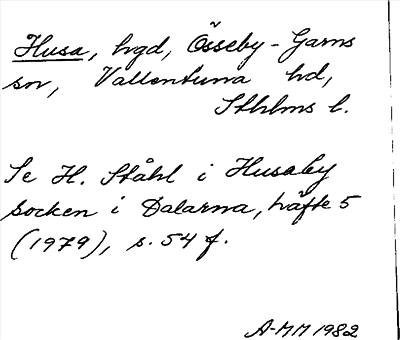 Husa, hvgd, Össeby-Garns
sn, Vallentuna hd,
Sthlms l.
Se H. Ståhl i Husaby
socken i Dalarna, häfte 5
(1979), s. 54 f.
A-MM 1982